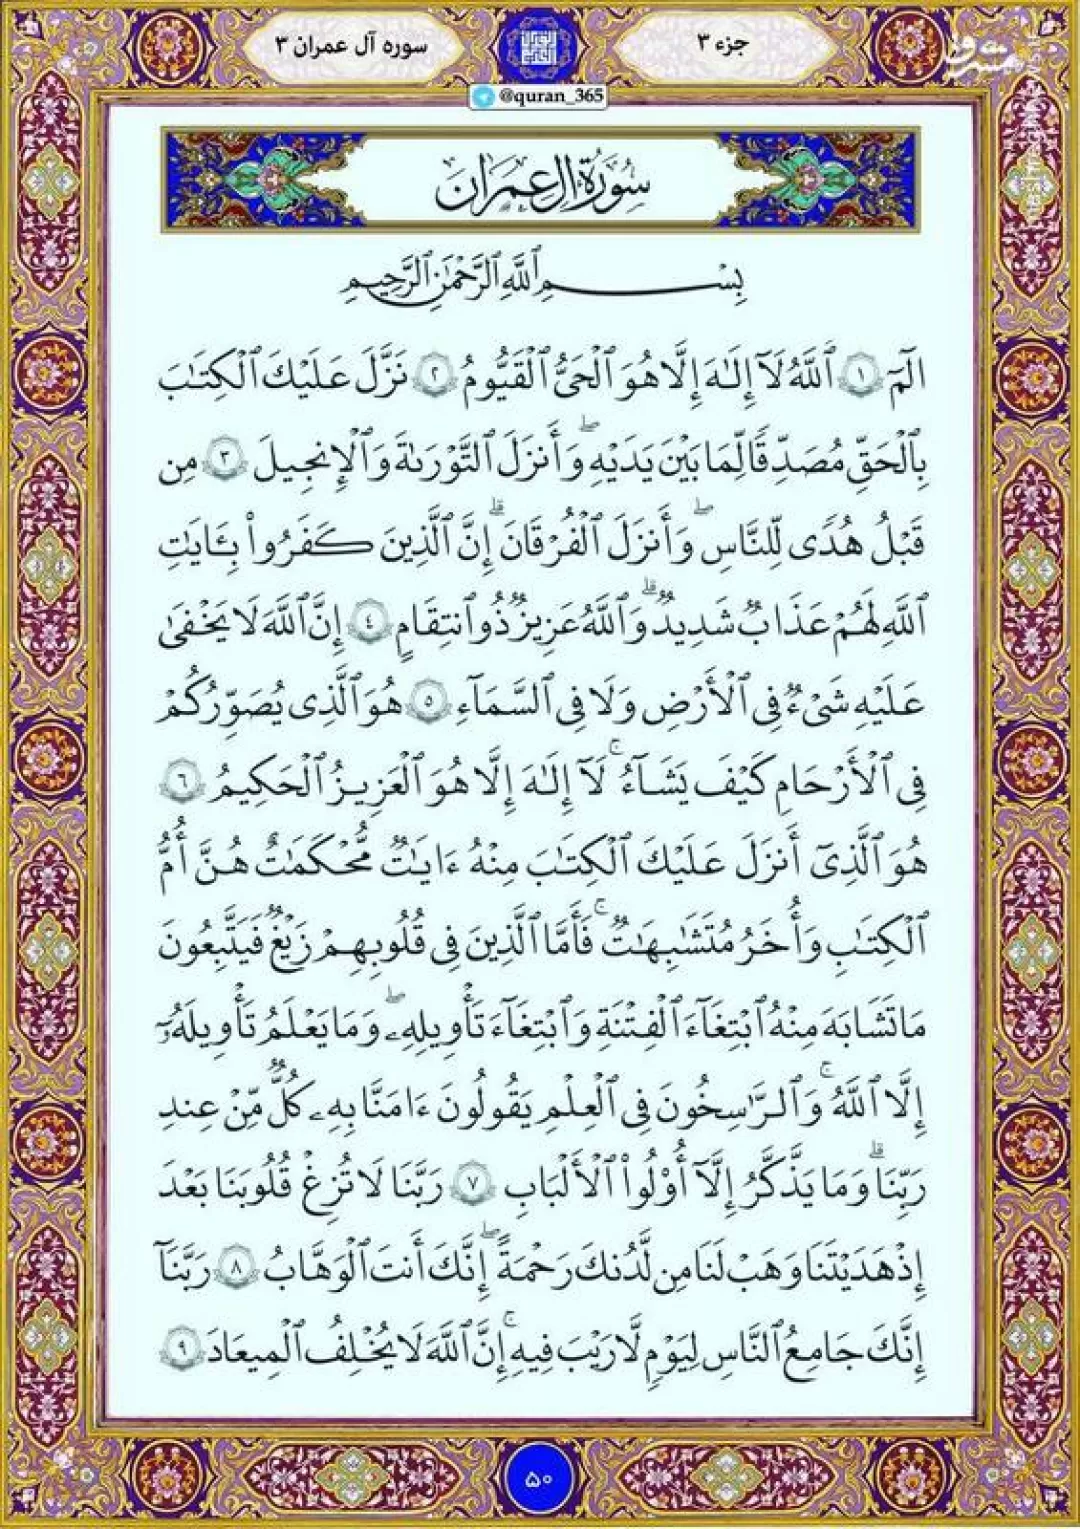 جزء ۳
سوره آل عمران ۳
مشرق
@quran_365
سُورَةُ آلِ عِمۡرَانَ
بِسۡمِ ٱللَّهِ ٱلرَّحۡمَٰنِ ٱلرَّحِيمِ
الٓمٓ ١ ٱللَّهُ لَآ إِلَٰهَ إِلَّا هُوَ ٱلۡحَيُّ ٱلۡقَيُّومُ ٢ نَزَّلَ عَلَيۡكَ ٱلۡكِتَٰبَ
بِٱلۡحَقِّ مُصَدِّقٗا لِّمَا بَيۡنَ يَدَيۡهِۖ وَأَنزَلَ ٱلتَّوۡرَىٰةَ وَٱلۡإِنجِيلَ ٣ مِن
قَبۡلُ هُدٗى لِّلنَّاسِۖ وَأَنزَلَ ٱلۡفُرۡقَانَۗ إِنَّ ٱلَّذِينَ كَفَرُواْ بِـَٔايَٰتِ
ٱللَّهِ لَهُمۡ عَذَابٞ شَدِيدٞۗ وَٱللَّهُ عَزِيزٞ ذُو ٱنتِقَامٍ ٤ إِنَّ ٱللَّهَ لَا يَخۡفَىٰ
عَلَيۡهِ شَيۡءٞ فِي ٱلۡأَرۡضِ وَلَا فِي ٱلسَّمَآءِ ٥ هُوَ ٱلَّذِي يُصَوِّرُكُمۡ
فِي ٱلۡأَرۡحَامِ كَيۡفَ يَشَآءُۚ لَآ إِلَٰهَ إِلَّا هُوَ ٱلۡعَزِيزُ ٱلۡحَكِيمُ ٦
هُوَ ٱلَّذِيٓ أَنزَلَ عَلَيۡكَ ٱلۡكِتَٰبَ مِنۡهُ ءَايَٰتٞ مُّحۡكَمَٰتٌ هُنَّ أُمُّ
ٱلۡكِتَٰبِ وَأُخَرُ مُتَشَٰبِهَٰتٞۚ فَأَمَّا ٱلَّذِينَ فِي قُلُوبِهِمۡ زَيۡغٞ فَيَتَّبِعُونَ
مَا تَشَٰبَهَ مِنۡهُ ٱبۡتِغَآءَ ٱلۡفِتۡنَةِ وَٱبۡتِغَآءَ تَأۡوِيلِهِۦۖ وَمَا يَعۡلَمُ تَأۡوِيلَهُۥٓ
إِلَّا ٱللَّهُۗ وَٱلرَّٰسِخُونَ فِي ٱلۡعِلۡمِ يَقُولُونَ ءَامَنَّا بِهِۦ كُلّٞ مِّنۡ عِندِ
رَبِّنَاۗ وَمَا يَذَّكَّرُ إِلَّآ أُوْلُواْ ٱلۡأَلۡبَٰبِ ٧ رَبَّنَا لَا تُزِغۡ قُلُوبَنَا بَعۡدَ
إِذۡ هَدَيۡتَنَا وَهَبۡ لَنَا مِن لَّدُنكَ رَحۡمَةًۖ إِنَّكَ أَنتَ ٱلۡوَهَّابُ ٨ رَبَّنَآ
إِنَّكَ جَامِعُ ٱلنَّاسِ لِيَوۡمٖ لَّا رَيۡبَ فِيهِۚ إِنَّ ٱللَّهَ لَا يُخۡلِفُ ٱلۡمِيعَادَ ٩
۵۰